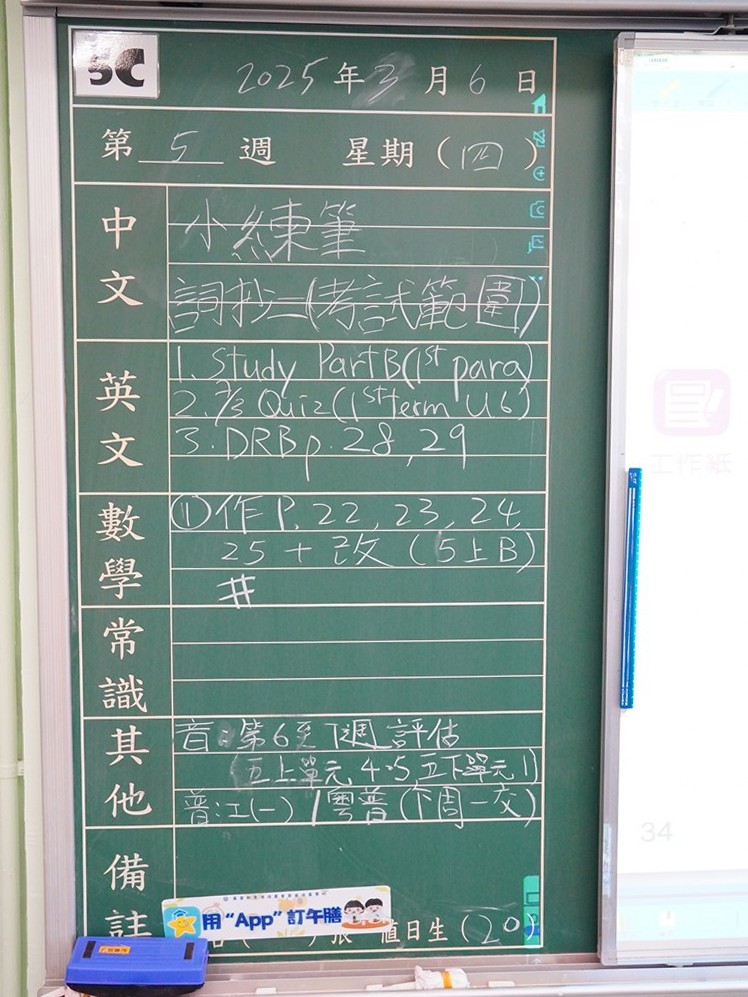 5C
2025年3月6日
第 5 週 星期(四)
中文
小練筆
詞抄二(考試範圍)
英文
1. Study Part B(1st para)
2. Quiz(1st term U6)
3. DRB p. 28, 29
數學
① 作 P. 22, 23, 24,
25 + 改 (5上B)
#
常識
其他
音: 第6至7週評估
(五上單元 4.5 五下單元 1)
普:工(一) / 粵普(下周一交)
備註
用“App”訂午膳
張 值日生(20)
工作紙
34